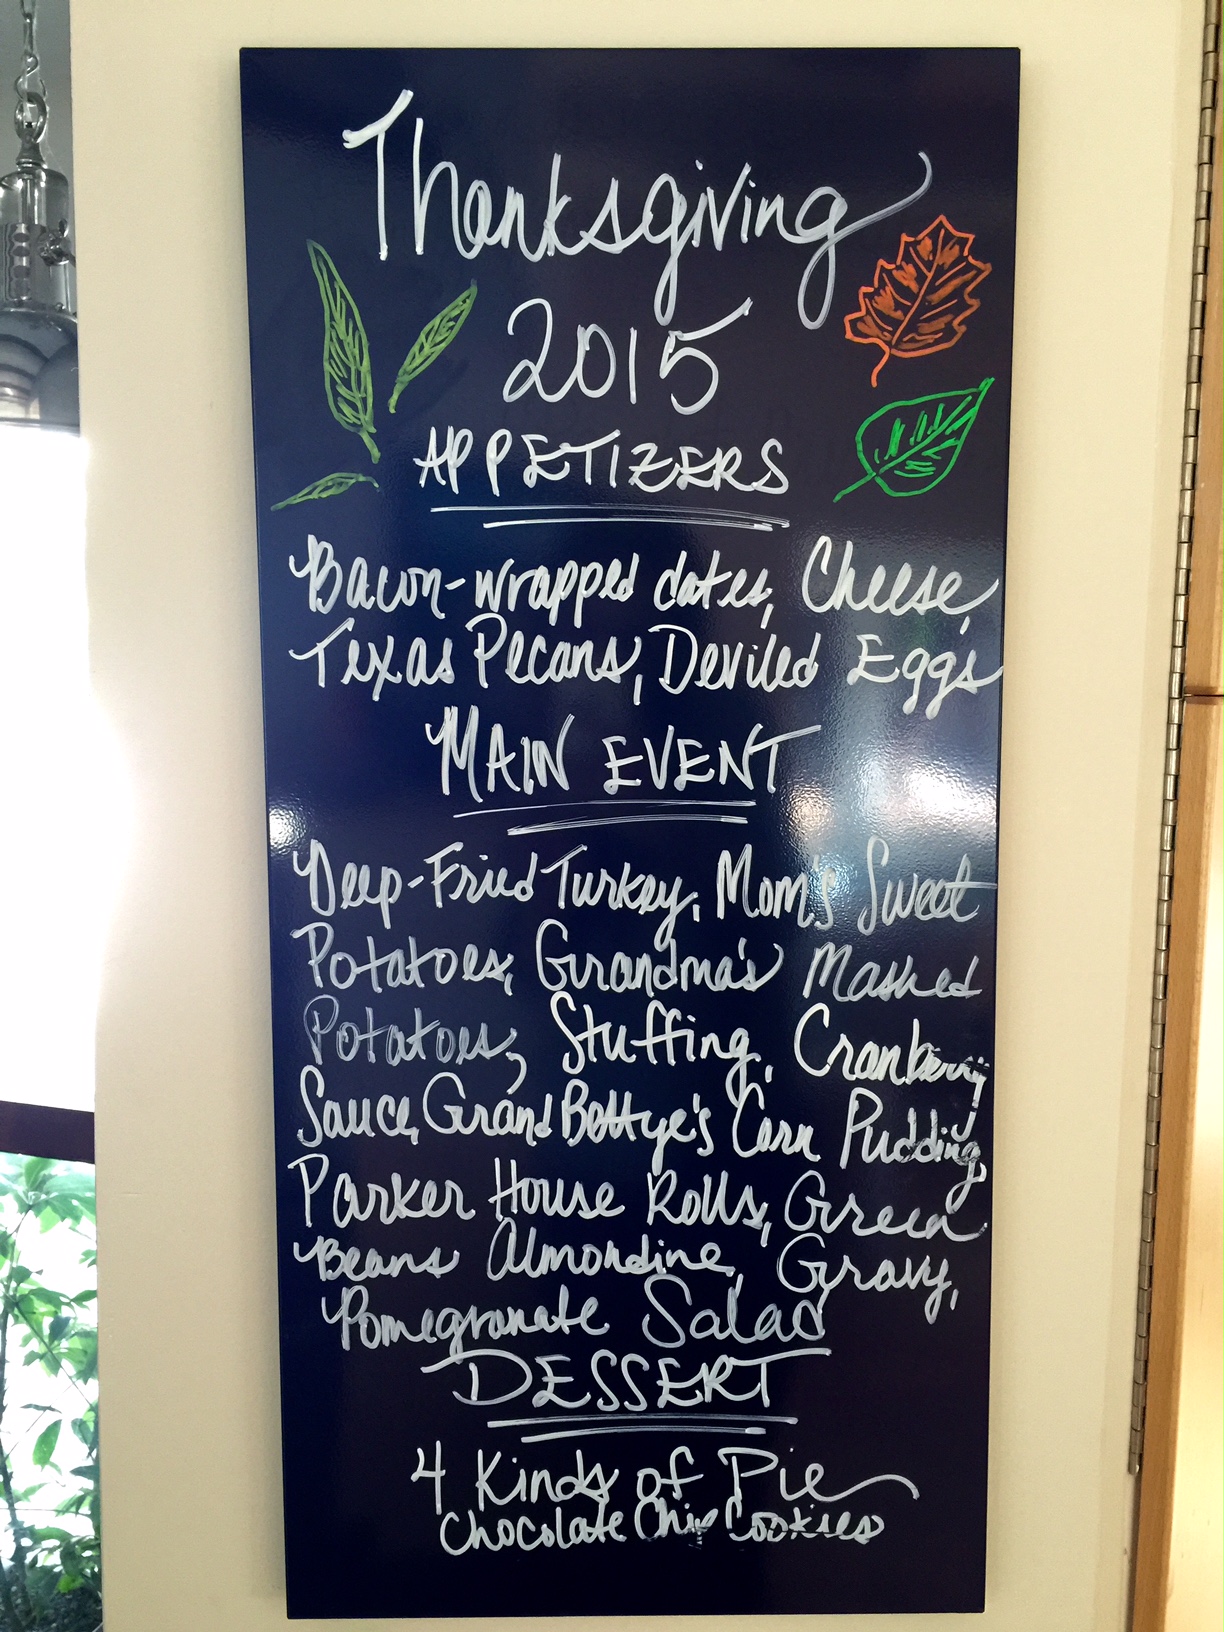 Thanksgiving
2015
APPETIZERS
Bacon-wrapped dates, Cheese,
Texas Pecans, Deviled Eggs
MAIN EVENT
Deep-Fried Turkey, Mom's Sweet
Potatoes, Grandma's Mashed
Potatoes, Stuffing, Cranberry
Sauce, Grand Bettye's Corn Pudding,
Parker House Rolls, Green
Beans Almondine, Gravy,
Pomegranate Salad
DESSERT
4 Kinds of Pie
Chocolate Chip Cookies